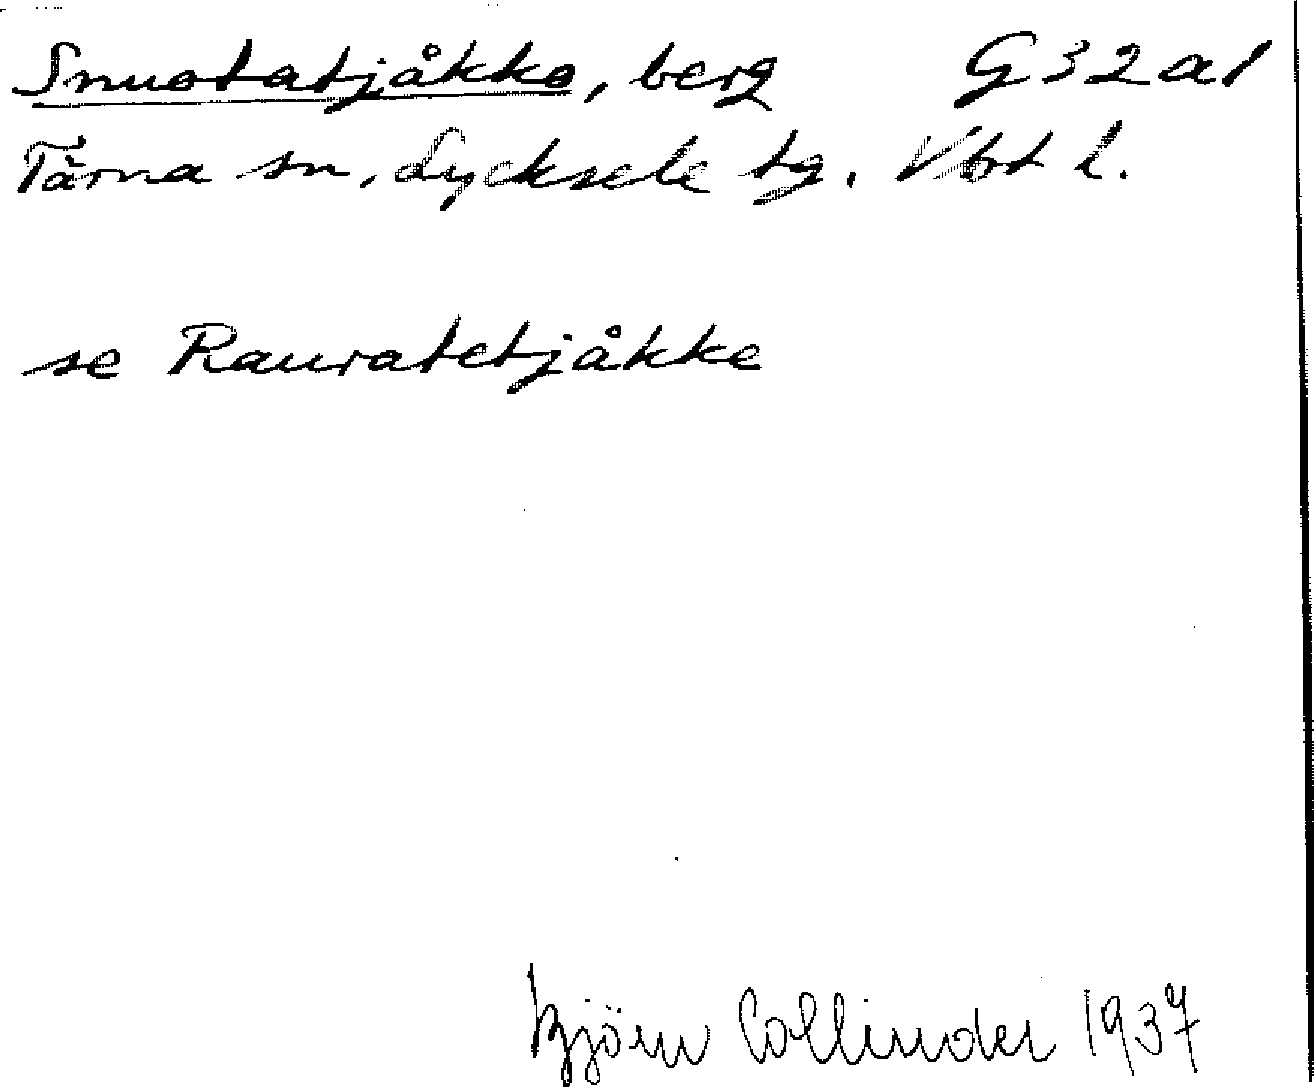 Snuotatjåkko, berg G32a1
Tärna sn, Lycksele tg. Vbt l.
se Rauratetjåkke
Björn Collinder 1937